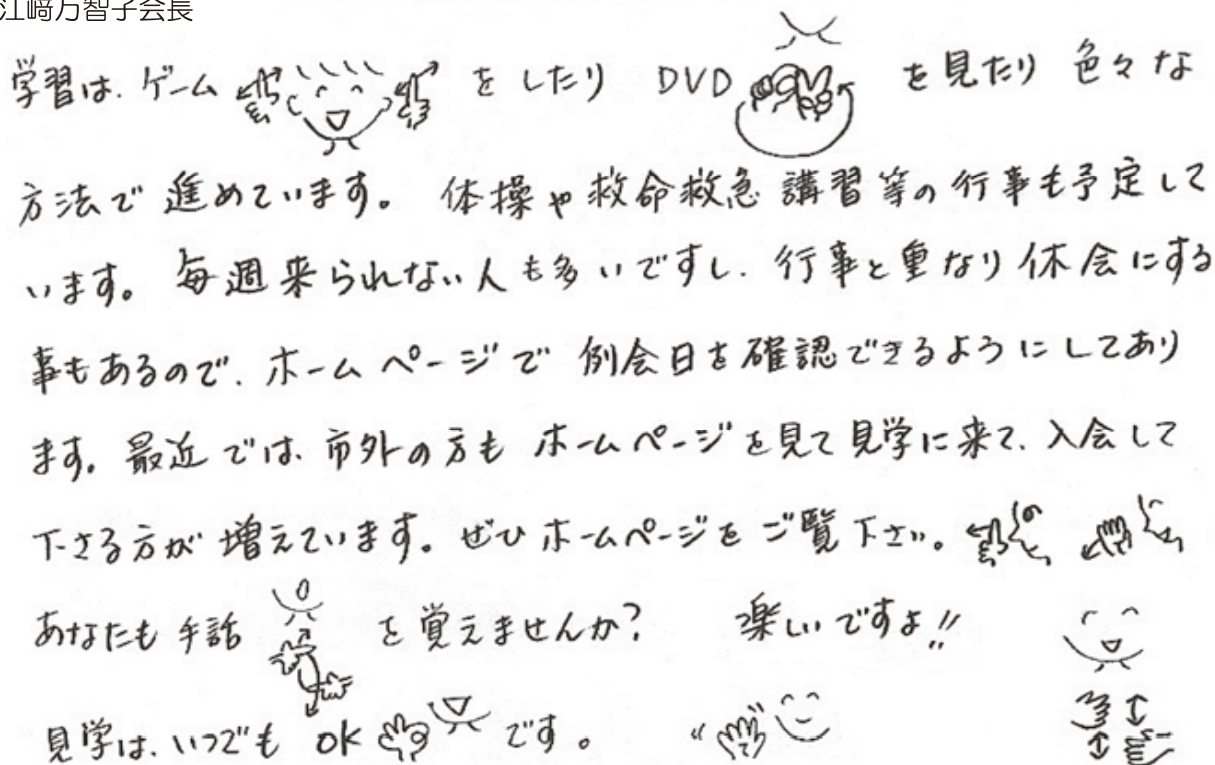 江﨑万智子会長
学習は、ゲームをしたり DVDを見たり 色々な
方法で進めています。 体操や救命救急講習等の行事も予定して
います。 毎週来られない人も多いですし、行事と重なり休会にする
事もあるので、ホームページで例会日を確認できるようにしてあり
ます。最近では、市外の方もホームページを見て見学に来て、入会して
下さる方が増えています。ぜひホームページをご覧下さい。
あなたも手話を覚えませんか? 楽しいですよ!!
見学は、いつでもOKです。